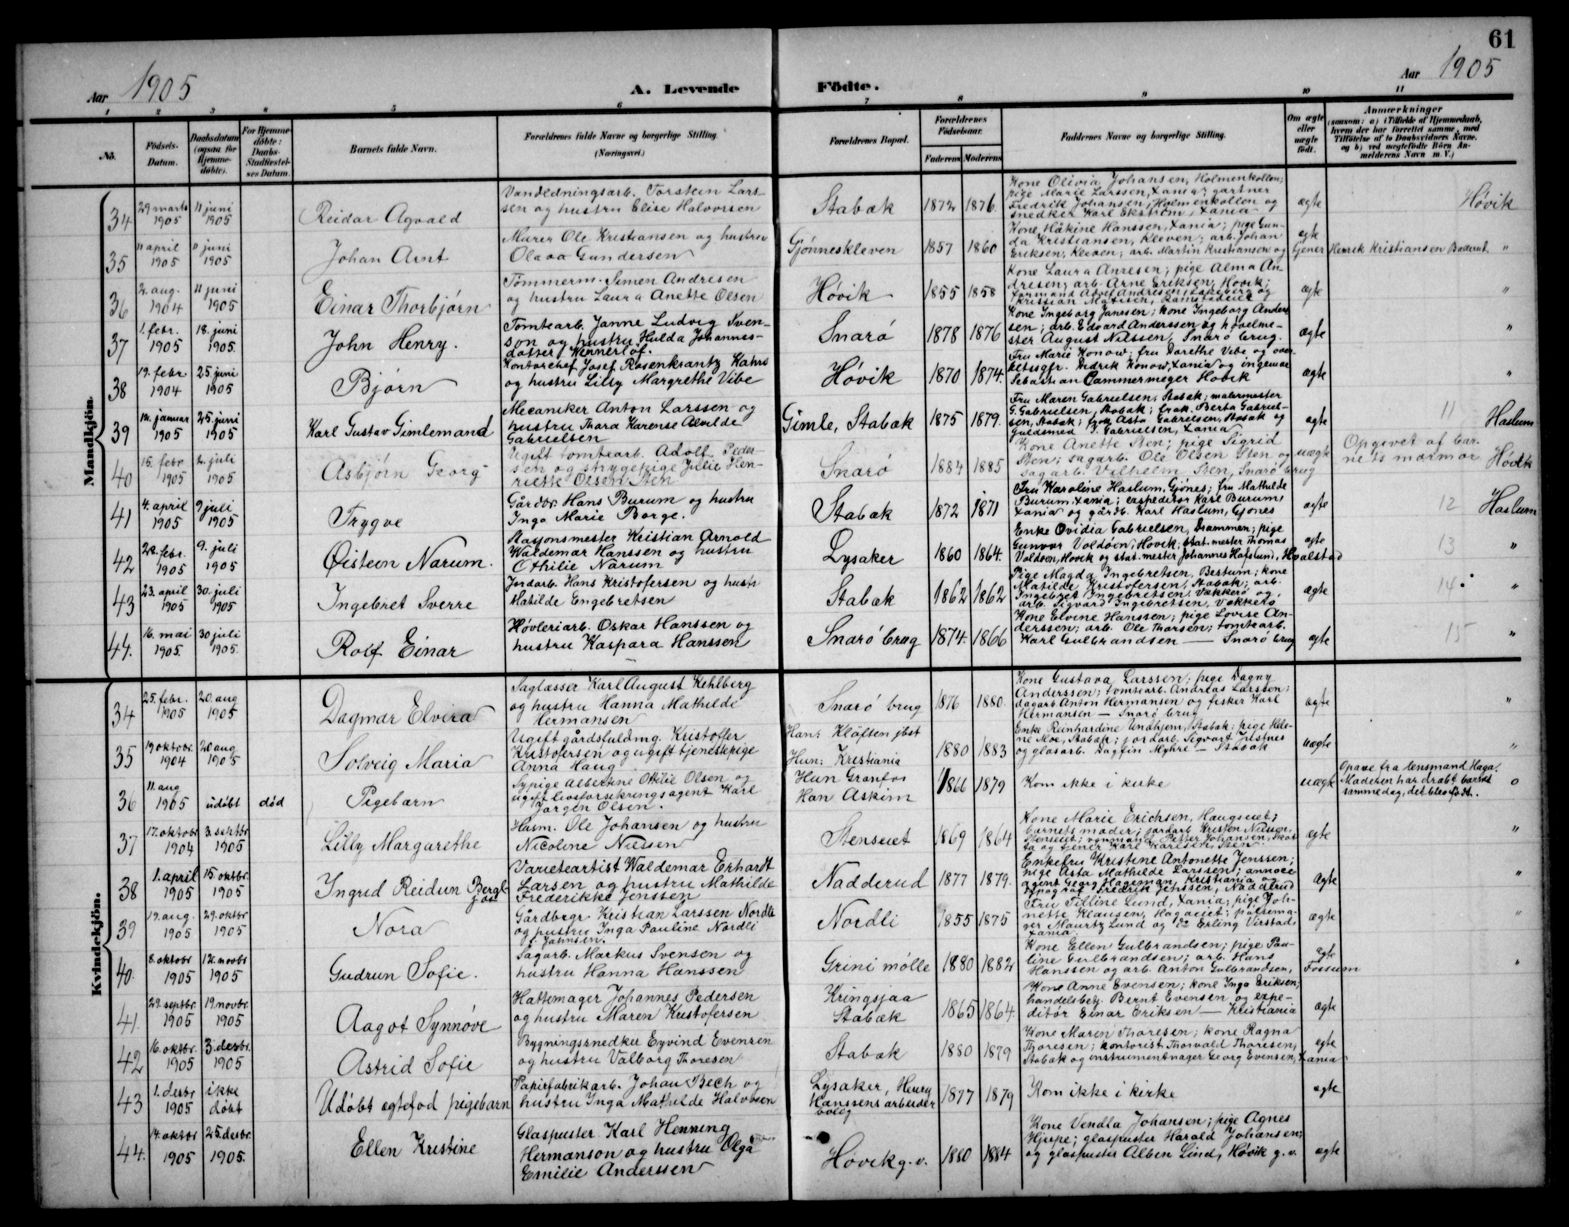 61
Aar 1905
A. Levende Födte.
Aar 1905
1 2 3 4 5 6 7 8 9 10 11
No.
Fødsels-Datum.
Daabsdatum (ogsaa for Hjemmedøbte).
For Hjemmedøbte: Daabs-Stadfæstelses Datum.
Barnets fulde Navn.
Forældrenes fulde Navne og borgerlige Stilling. (Næringsvei.)
Forældrenes Bopæl.
Forældrenes Fødselsaar. Faderens Moderens
Faddernes Navne og borgerlige Stilling.
Om ægte eller uægte født.
Anmærkninger
Mandkjön.
34 29 marts 1905 11 juni 1905 Reidar Agvald
Vandledningsarb. Torstein Larssen og hustru Elise Halvorsen
Stabæk 1872 1876
Kone Olivia Johansen, Holmenkollen;
pige Marie Larssen, Xania; gartner
Fredrik Johansen, Holmenkollen og
snedker Karl Ekström, Xania
ægte Høvik
35 11 april 1905 11 juni 1905 Johan Arnt
Murer Ole Kristiansen og hustru
Olava Gundersen
Gjønneskleven 1857 1860
Kone Håkine Hanssen, Xania; pige Gunda Kristiansen, Kleven; arb. Johan
Eriksen, Kleven; arb. Martin Kristiansen og Gjener Henrik Kristiansen Bøderud.
egte "
36 2. aug. 1904 11 juni 1905 Einar Thorbjørn
Tømmerm. Simen Andresen
og hustru Laura Anette Olsen
Høvik 1855 1858
Kone Laura Anresen; pige Alma Andresen; arb. Arne Eriksen, Høvik;
ægte "
37 1. febr. 1905 18. juni 1905. John Henry.
Tomtearb. Janne Ludvig Svenson og hustru Hulda Johannesdotter Wennerlöf.
Snarø 1878 1876
Kone Ingeborg Janssen; kone Ingeborg Anderssen; arb. Edvard Anderssen og høvelmester August Nilssen, Snarø brug.
ægte "
38 19. febr 1904 25 juni 1905 Bjørn
Kontorchef Josef Rosenkrantz Kahrs
og hustru Lilly Margrethe Vibe
Høvik 1870 1874.
Fru Marie Konow; fru Dorethe Vibe, og
Fredrik Konow, Xania og ingeniør
Sebastian Cammermeyer Høvik
ægte "
39 14. januar 1905 25. juni 1905 Karl Gustav Gimlemand
Mecaniker Anton Larssen og
hustru Thora Karense Alvilde
Gabrielsen
Gimle, Stabæk 1875 1879.
Fru Maren Gabrielsen, Stabæk; malermester
G. Gabrielsen, Stabæk; frøk. Berta Gabrielsen, Stabæk; frøk. Asta Gabrielsen, Stabæk og
Guldsmed J. Gabrielsen, Xania
ægte 11 Haslum
40 15. febr 1905 2. juli 1905 Asbjørn Georg
Ugift tomtearb. Adolf Pedersen og strygepige Julie Henriette Olsen Sten
Snarø 1884 1885
Kone Anette Sten; pige Sigrid
Sten; sagarb. Ole Olsen Sten og
sagarb. Vilhelm Sten, Snarø brug
uægte Opgivet af barnets mormor Høvik
41 4. april 1905 9 juli 1905 Trygve
Gårdbr. Hans Burum og hustru
Inga Marie Borge.
Stabæk 1872 1871
Fru Karoline Haslum, Gjønes; fru Mathilde
Burum, Xania; expeditør Karl Burum,
Xania og gårdb. Karl Haslum, Gjønes
ægte 12 Haslum
42 28. febr. 1905 9. juli 1905 Øistein Narum.
Stasjonsmester Kristian Arnold
Waldemar Hanssen og hustru
Othilie Narum
Lysaker 1860 1864.
Enke Ovidia Gabrielsen, Drammen; pige
Gunvor Voldøen, Høvik; stat.mester Thomas
Voldøen, Høvik og stat.mester Johannes Haslum, Hvalstad
ægte 13 "
43 23. april 1905 30. juli 1905 Ingebret Sverre
Jordarb. Hans Kristofersen og hustr
Matilde Engebretsen
Stabæk 1862 1862
Pige Magda Ingebretsen, Bestum; kone
Matilde Kristofersen, Stabæk; arb.
Ingebret Ingebretsen, Vækkerø og
arb. Sigvard Ingebretsen, Vækkerø
ægte 14 "
44. 16. mai 1905. 30 juli 1905. Rolf Einar
Høvleriarb. Oskar Hanssen og
hustru Kaspara Hanssen
Snarø brug 1874. 1866
Kone Elvine Hanssen; pige Lovise Anderssen; arb. Ole Thorsen; tomtearb.
Karl Gulbrandsen — Snarø brug
ægte 15 "
Kvindekjön.
34 25. febr. 1905 20. aug 1905 Dagmar Elvira
Saglæsser Karl August Kehlberg
og hustru Hanna Mathilde
Hermansen
Snarø brug 1876 1880
Kone Gustava Larssen; pige Dagny
Anderssen; tomtearb. Andreas Larssen;
dagarb Anton Hermansen og fisker Karl
Hermansen — Snarø brug
ægte "
35 19 oktobr. 1904 20 aug 1905 Solveig Maria
Ugift gårdsfuldmg. Kristoffer
Kristofersen og ugift tjenestepige
Anna Haug
Han: Kløften jbst
Hun: Kristiania
1880 1883
Enke Reinhardine Andhjem, Stabæk; pige Helene Moe, Stabæk; jordarb. Sigvart Julsnes
og glasarb. Dagfin Myhre — Stabæk
uægte "
36 11. aug 1905 udøbt død Pigebarn
Sypige Albertine Othilie Olsen og
ugift livsforsikringsagent Karl
Jørgen Olsen.
Hun Granfos
Han Askim
1866 1879
Kom ikke i kirke
uægte
Opgave fra lensmand Haga.
Moderen har dræbt barnet
samme dag, det blev født. 0
37 17. oktobr 1904 3. septbr 1905 Lilly Margarethe
Husm. Ole Johansen og hustru
Nicoline Nilsen
Stensviet 1869 1864
Kone Marie Erichsen, Haugsviet;
barnets moder; jordarb. Kristen Nilsen,
egte "
38 1. april 1905 15 oktbr. 1905 Ingrid Reidun Bergljot
Varieteartist Waldemar Erhardt
Larsen og hustru Mathilde
Frederikke Jenssen
Nadderud 1877 1879.
Enkefru Kristine Antonette Jenssen;
pige Asta Mathilde Larssen; annonceagent Georg Hageman, Kristiania og
typograf Fredrik Jenssen, Nadderud
ægte "
39 19. aug. 1905 29. oktbr 1905 Nora
Gårdbrgr. Kristian Larssen Nordli
og hustru Inga Pauline Nordli
f. Jahnsen.
Nordli 1855 1875
Fru Tilline Lund, Xania; pige Johnette Klausen, Hagaviet; pølsemager Mauritz Lund og Erling Virstad,
Xania
ægte "
40. 8. oktobr 1905 12. novbr 1905 Gudrun Sofie.
Sagarb. Markus Svensen og
hustru Hanna Hanssen
Grini mølle 1880 1882
Kone Ellen Gulbrandsen; pige Pauline Gulbrandsen; arb. Hans
Hanssen og arb. Anton Gulbrandsen, Fossum
egte "
41. 29. septbr 1905 19 novbr. 1905 Aagot Synnøve
Hattemager Johannes Pedersen
og hustru Maren Kristofersen
Kringsjaa
Stabæk
1865 1864
Kone Anne Evensen; kone Inga Eriksen;
handelsbetj. Bernt Evensen og expeditør Einar Eriksen — Kristiania
ægte
42 16. oktbr. 1905 3. desbr. 1905 Astrid Sofie
Bygningssnedker Eyvind Evensen
og hustru Valborg Thoresen
Stabæk 1880 1879
Kone Maren Thoresen; kone Ragna
Thoresen; kontorist Thorvald Thoresen,
Stabæk og instrumentmager Georg Evensen, Xania
egte
43 1. desbr 1905 ikke døbt Udøbt egtefød pigebarn
Papirfabrikarb. Johan Bech og
hustru Inga Mathilde Halvorsen
Lysaker, Henry
Hanssens arbeiderbolig
1877 1879
Kom ikke i kirke
egte
44. 14. oktbr 1905 25. desbr. 1905. Ellen Kristine
Glaspuster Karl Henning
Hermanson og hustru Olga
Emilie Anderssen
Høvik g. v. 1880 1884
Kone Vendla Johansen; pige Agnes
Hjerpe; glaspuster Harald Johansen;
og glaspuster Alben Lind, Høvik g. v.
egte